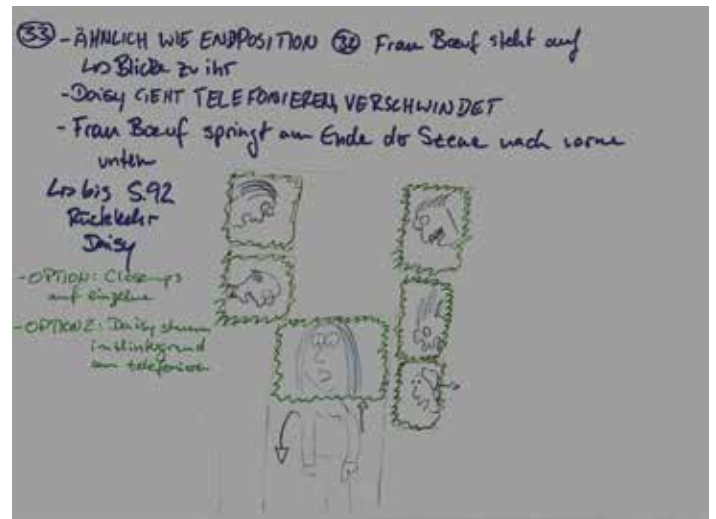 33 - ÄHNLICH WIE ENDPOSITION 32 Frau Bœuf steht auf
↳ Blicke zu ihr
- Daisy GEHT TELEFONIEREN, VERSCHWINDET
- Frau Bœuf springt am Ende der Scene nach vorne
unten
↳ bis S.92
Rückkehr
Daisy
- OPTION: Closeups
auf einzelne
- OPTION 2: Daisy stumm
im Hintergrund
am telefonieren